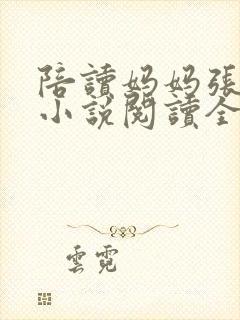 陪讀媽媽張
小說閱讀全
雲霓